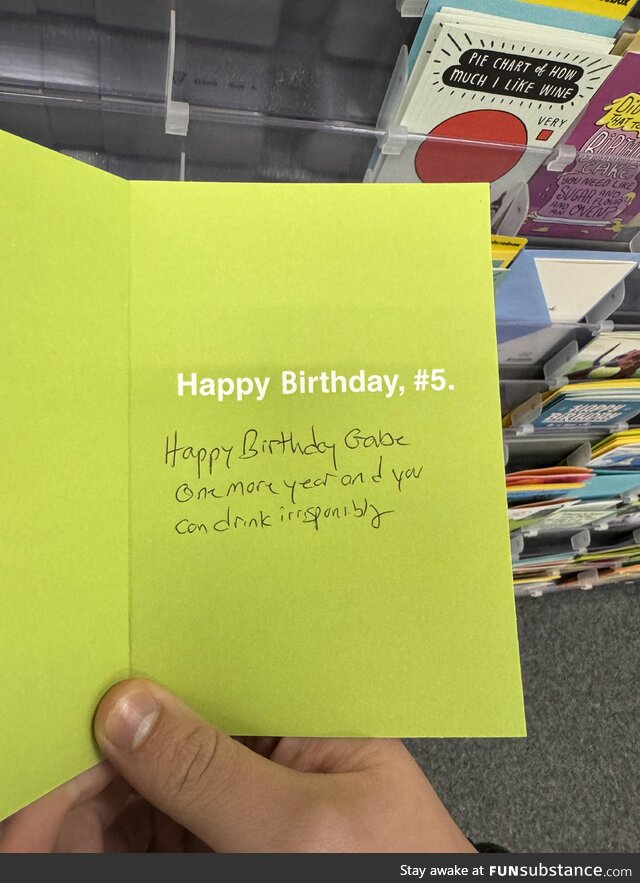 PIE CHART of HOW
MUCH I LIKE WINE
VERY
CAKE
YOU NEED LIKE
SUGAR AND FLOUR
AND AN OVEN?
HAPPY
BIRTHDAY
Happy Birthday, #5.
Happy Birthday Gabe
One more year and you
can drink irrisponsibly
Stay awake at FUNsubstance.com